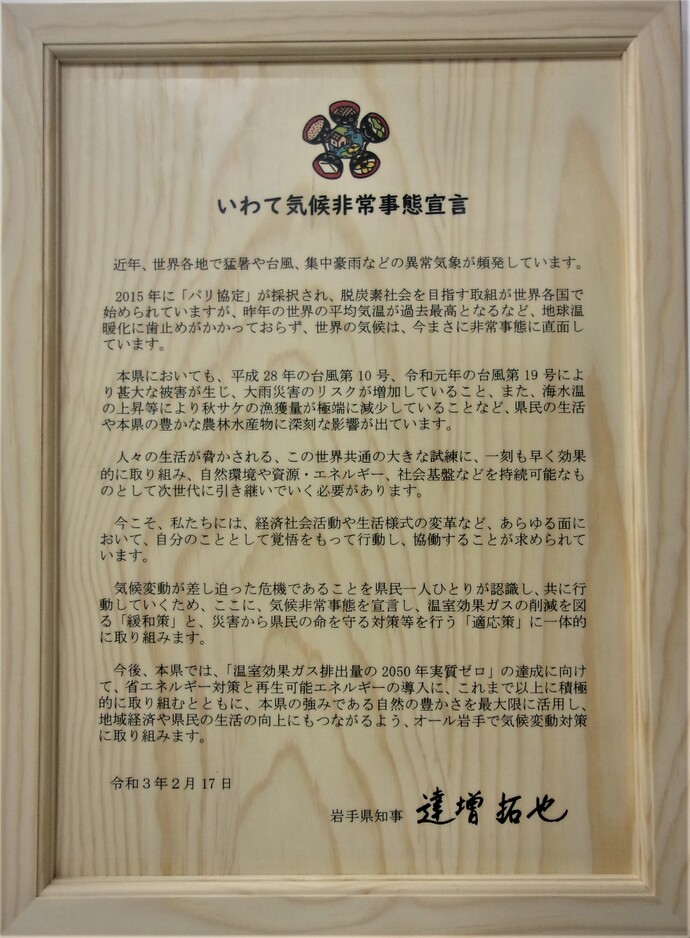 いわて気候非常事態宣言
近年、世界各地で猛暑や台風、集中豪雨などの異常気象が頻発しています。
2015年に「パリ協定」が採択され、脱炭素社会を目指す取組が世界各国で
始められていますが、昨年の世界の平均気温が過去最高となるなど、地球温
暖化に歯止めがかかっておらず、世界の気候は、今まさに非常事態に直面し
ています。
本県においても、平成28年の台風第10号、令和元年の台風第19号によ
り甚大な被害が生じ、大雨災害のリスクが増加していること、また、海水温
の上昇等により秋サケの漁獲量が極端に減少していることなど、県民の生活
や本県の豊かな農林水産物に深刻な影響が出ています。
人々の生活が脅かされる、この世界共通の大きな試練に、一刻も早く効果
的に取り組み、自然環境や資源・エネルギー、社会基盤などを持続可能なも
のとして次世代に引き継いでいく必要があります。
今こそ、私たちには、経済社会活動や生活様式の変革など、あらゆる面に
おいて、自分のこととして覚悟をもって行動し、協働することが求められて
います。
気候変動が差し迫った危機であることを県民一人ひとりが認識し、共に行
動していくため、ここに、気候非常事態を宣言し、温室効果ガスの削減を図
る「緩和策」と、災害から県民の命を守る対策等を行う「適応策」に一体的
に取り組みます。
今後、本県では、「温室効果ガス排出量の2050年実質ゼロ」の達成に向け
て、省エネルギー対策と再生可能エネルギーの導入に、これまで以上に積極
的に取り組むとともに、本県の強みである自然の豊かさを最大限に活用し、
地域経済や県民の生活の向上にもつながるよう、オール岩手で気候変動対策
に取り組みます。
令和3年2月17日
岩手県知事 達増拓也